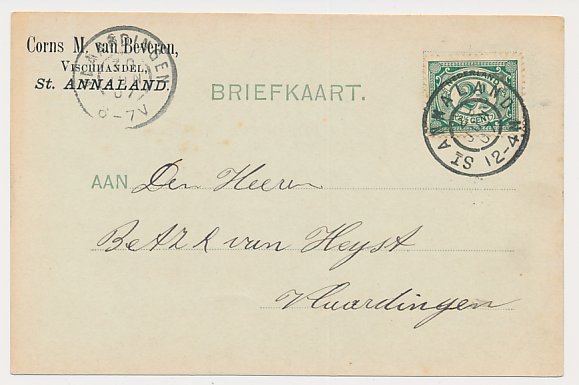 Corns M. van Beveren,
VISCHHANDEL,
St. ANNALAND.
VLAARDINGEN
6-7V
BRIEFKAART.
NEDERLAND
2½
CENT
ST ANNALAND
12-4N
AAN Den Heeren
van Heyst
Vlaardingen